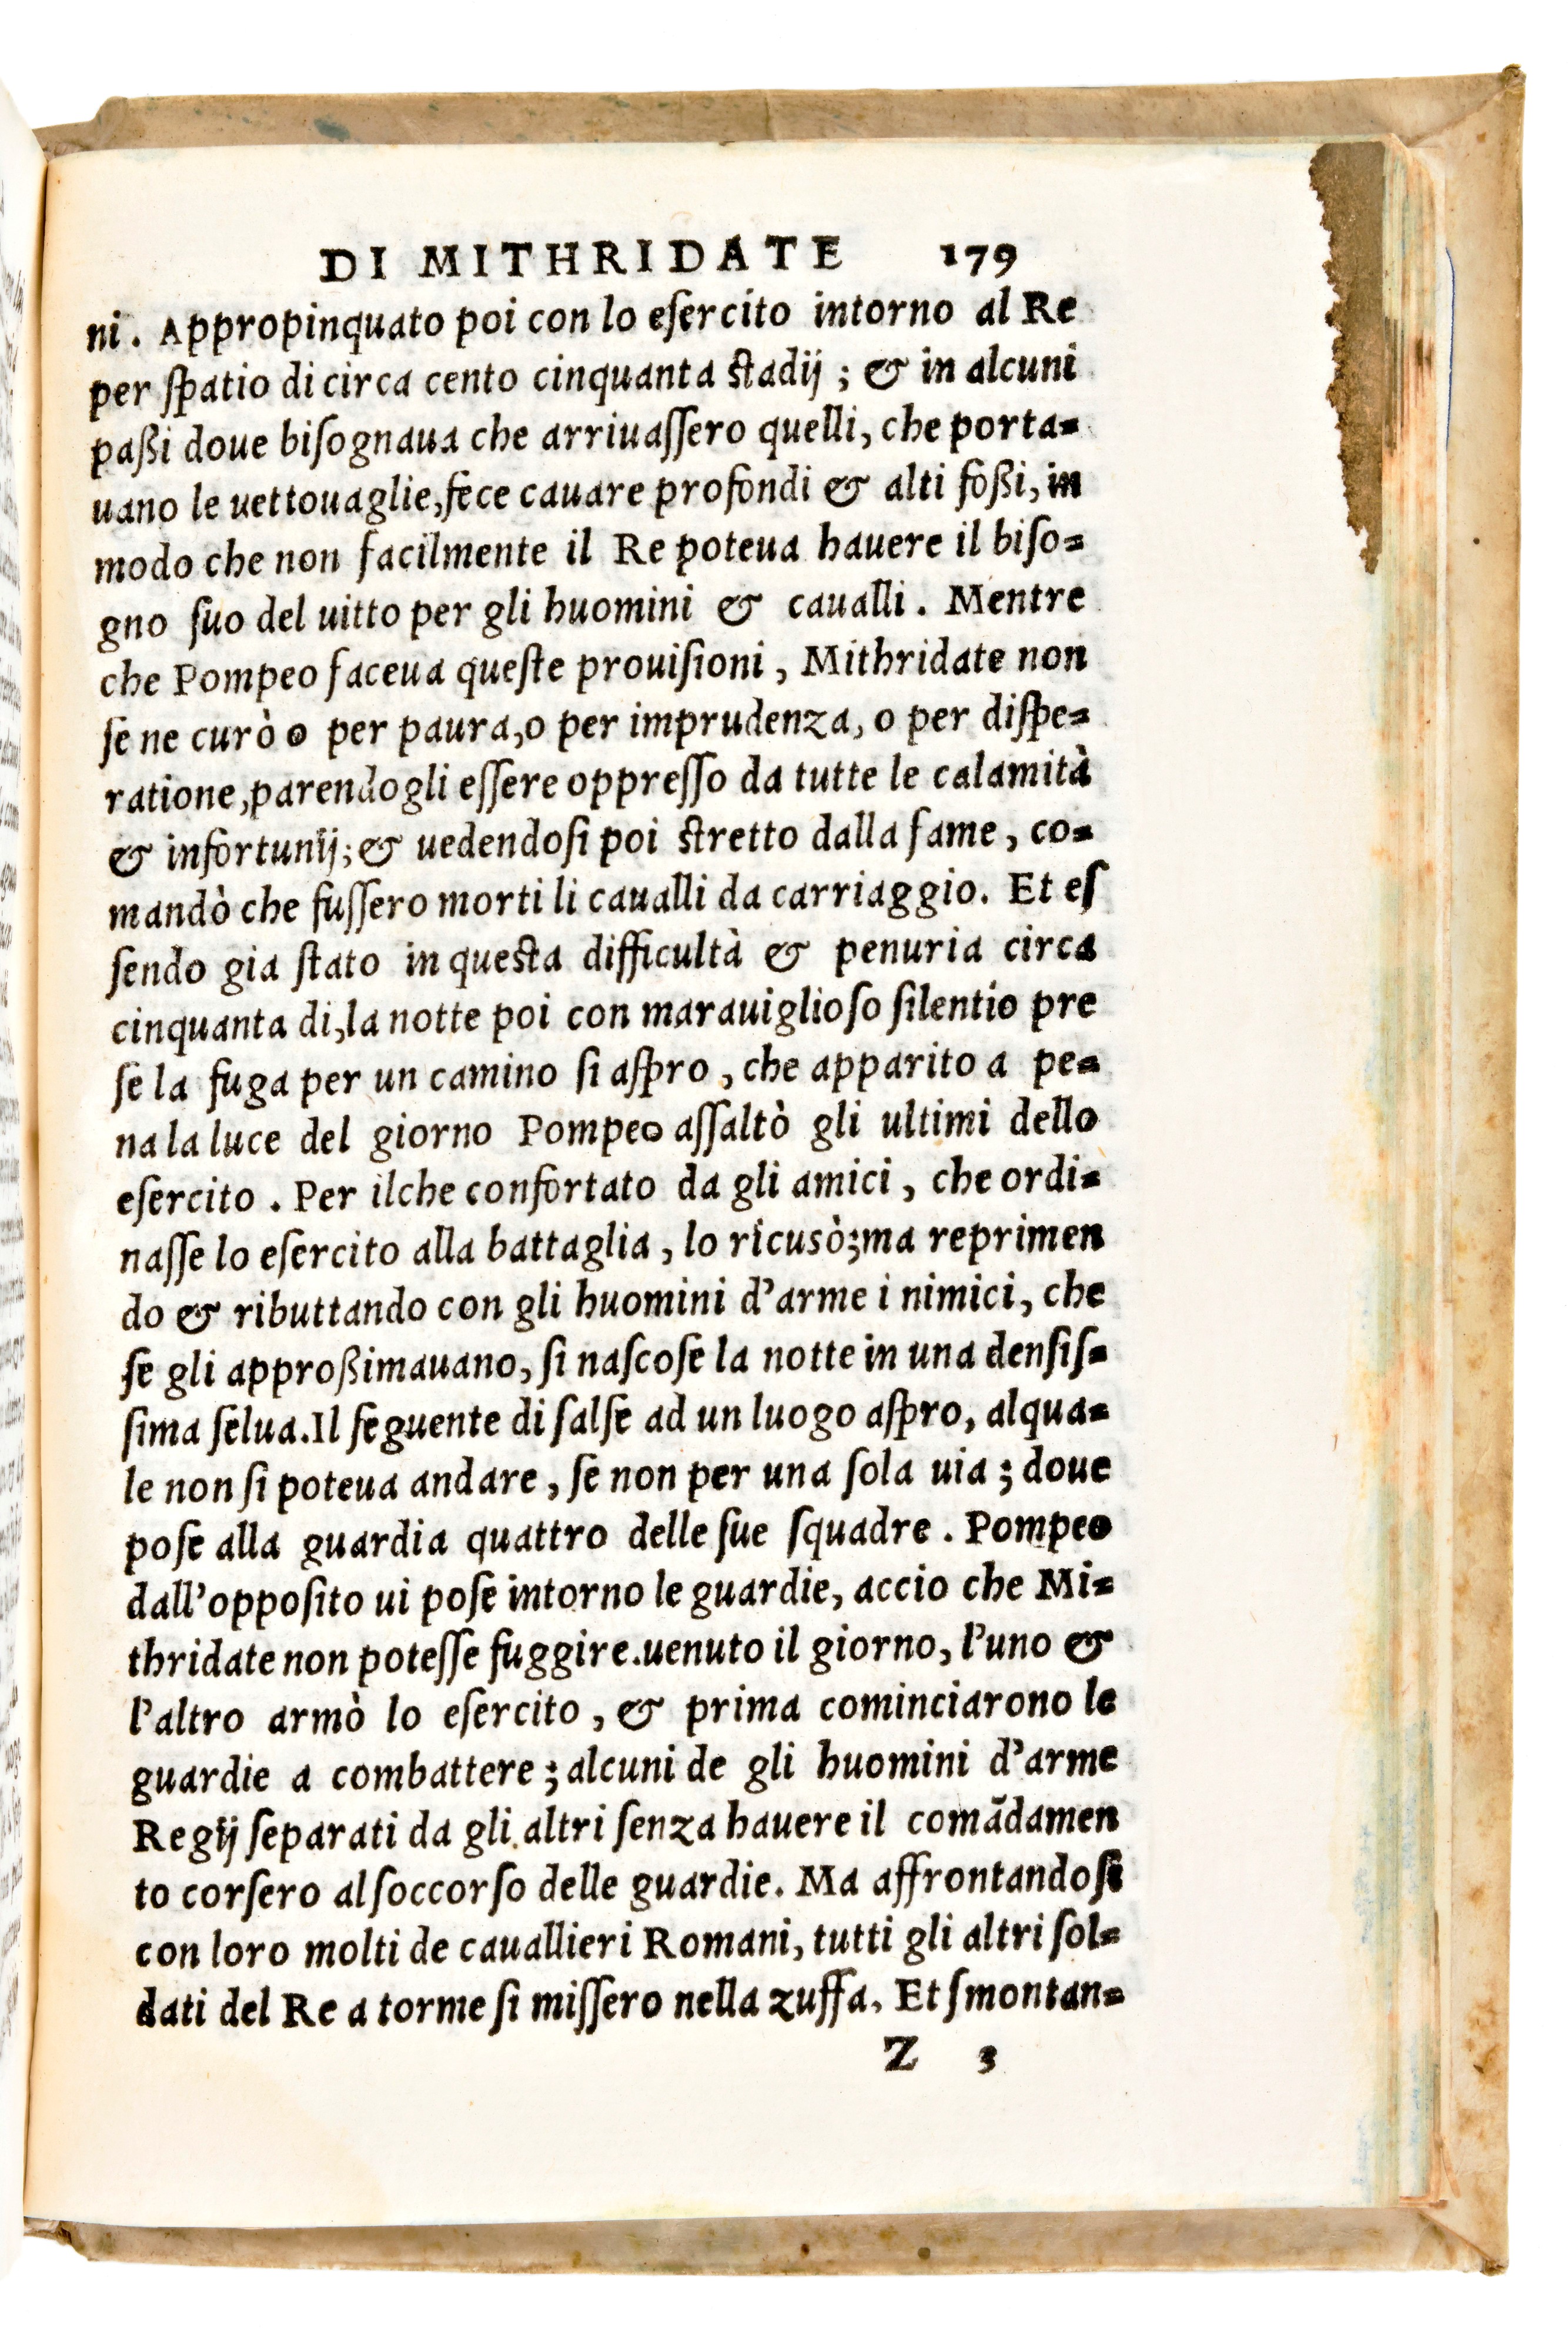 DI MITHRIDATE 179
ni. Appropinquato poi con lo eſercito intorno al Re
per ſpatio di circa cento cinquanta ſtadij; & in alcuni
paßi doue biſognaua che arriuaſſero quelli, che porta-
uano le uettouaglie, fece cauare profondi & alti foßi, in
modo che non facilmente il Re poteua hauere il biſo-
gno ſuo del uitto per gli huomini & caualli. Mentre
che Pompeo faceua queſte prouiſioni, Mithridate non
ſe ne curò o per paura, o per imprudenza, o per diſpe-
ratione, parendogli eſſere oppreſſo da tutte le calamità
& infortunij; & uedendoſi poi ſtretto dalla fame, co-
mandò che fuſſero morti li caualli da carriaggio. Et eſ
ſendo gia ſtato in queſta difficultà & penuria circa
cinquanta di, la notte poi con marauiglioſo ſilentio pre
ſe la fuga per un camino ſi aſpro, che apparito a pe-
na la luce del giorno Pompeo aſſaltò gli ultimi dello
eſercito. Per ilche confortato da gli amici, che ordi-
naſſe lo eſercito alla battaglia, lo ricusò; ma reprimen
do & ributtando con gli huomini d'arme i nimici, che
ſe gli approßimauano, ſi naſcoſe la notte in una denſiſ-
ſima ſelua. Il ſeguente di ſalſe ad un luogo aſpro, alqua-
le non ſi poteua andare, ſe non per una ſola uia; doue
poſe alla guardia quattro delle ſue ſquadre. Pompeo
dall'oppoſito ui poſe intorno le guardie, accio che Mi-
thridate non poteſſe fuggire. uenuto il giorno, l'uno &
l'altro armò lo eſercito, & prima cominciarono le
guardie a combattere; alcuni de gli huomini d'arme
Regij ſeparati da gli altri ſenza hauere il comãdamen
to corſero al ſoccorſo delle guardie. Ma affrontandoſi
con loro molti de cauallieri Romani, tutti gli altri ſol-
dati del Re a torme ſi miſſero nella zuffa. Et ſmontan-
Z 3